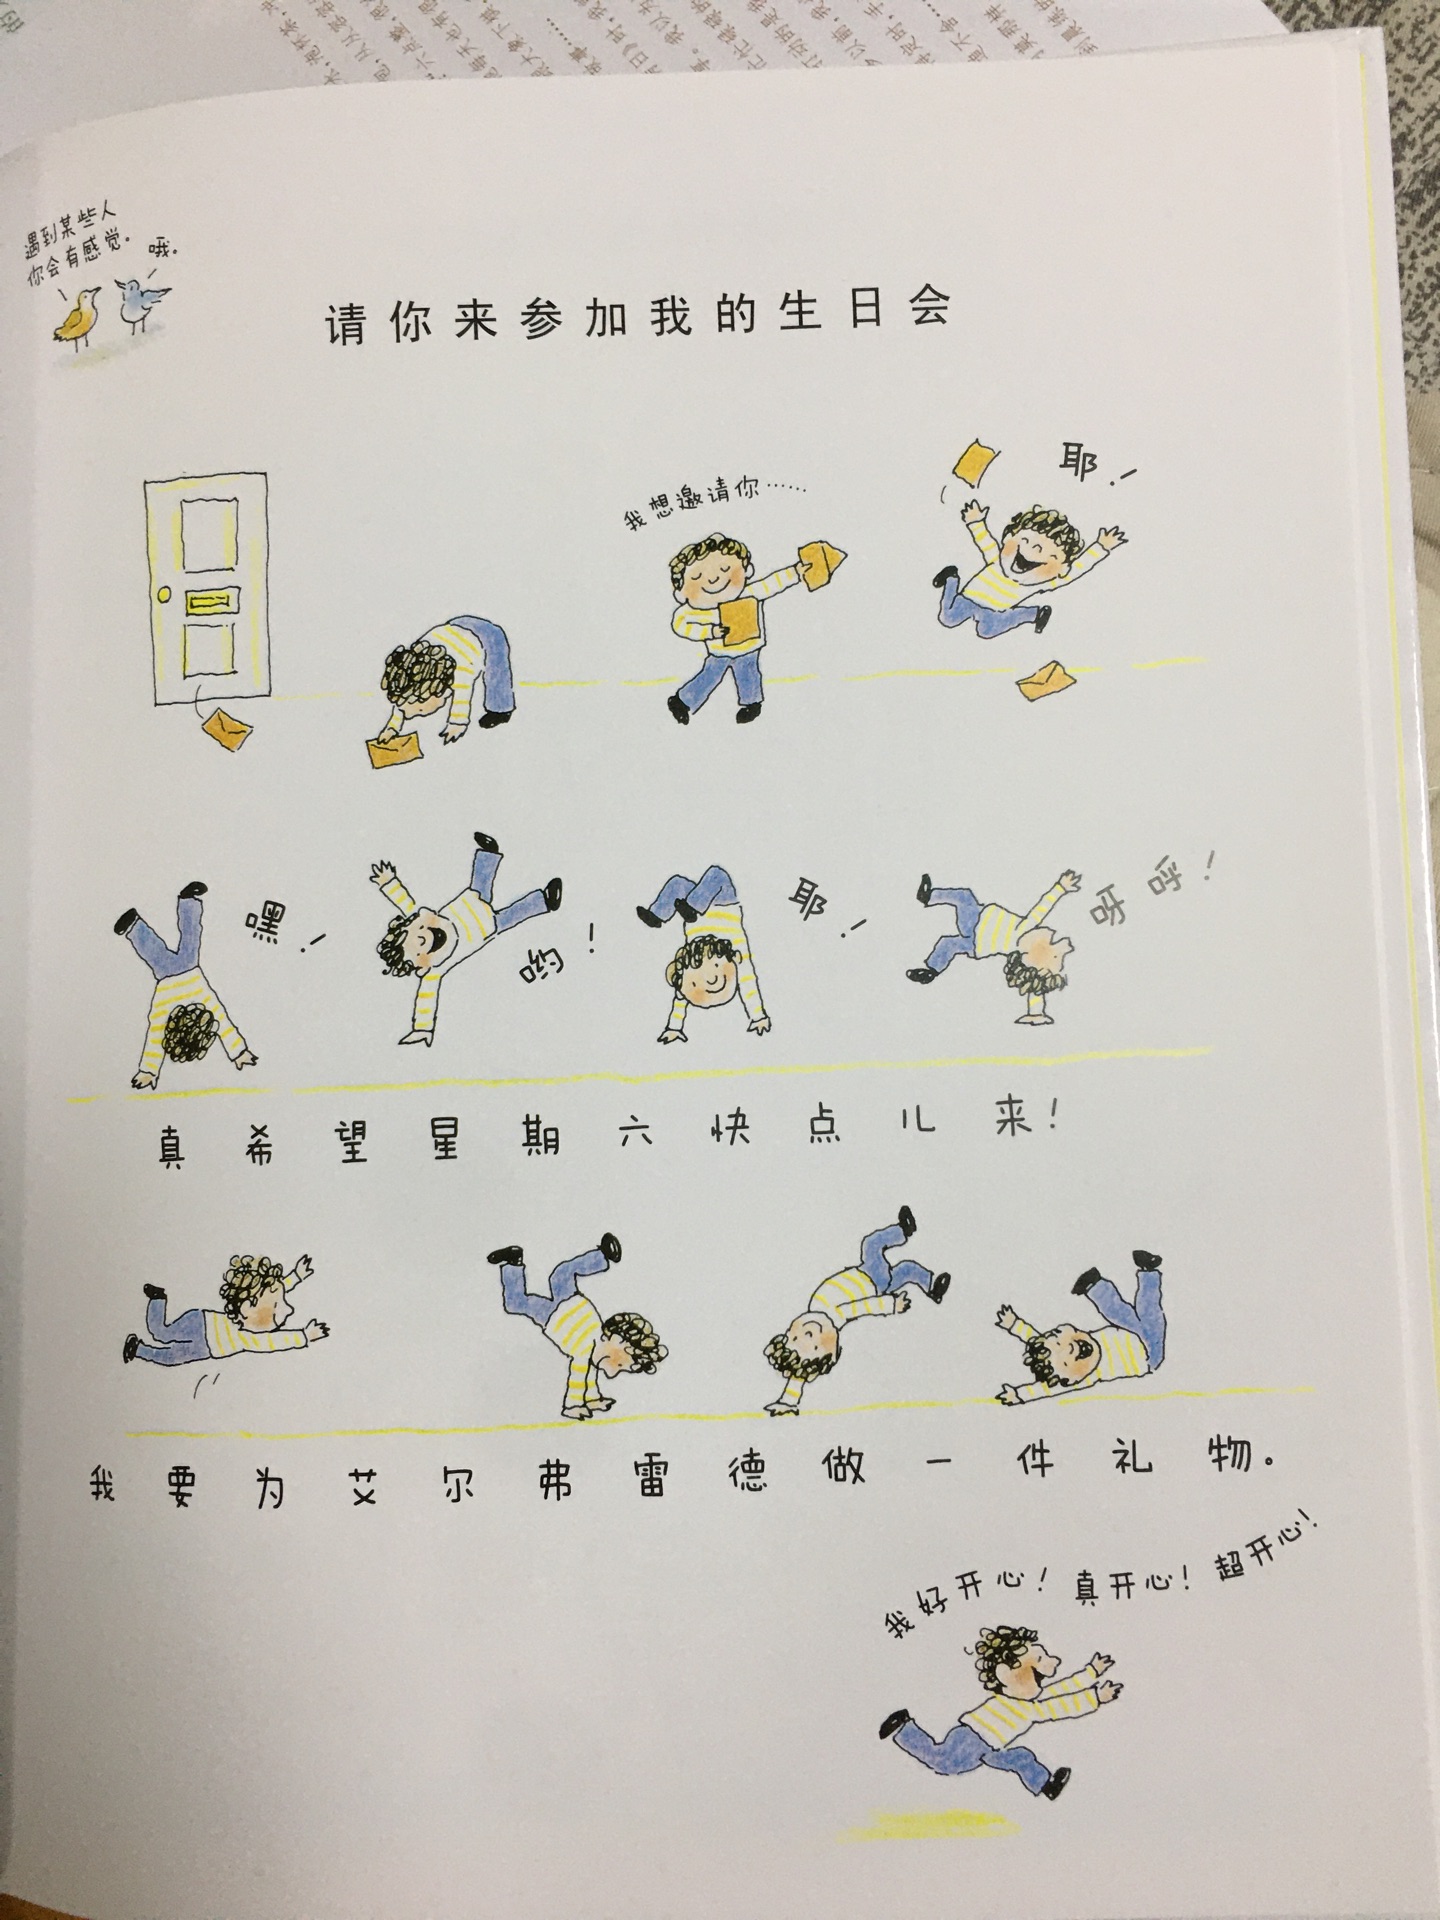 遇到某些人
你会有感觉。
哦。
请你来参加我的生日会
我想邀请你……
耶！
嘿！
哟！
耶！
呀呼！
真希望星期六快点儿来！
我要为艾尔弗雷德做一件礼物。
我好开心！真开心！超开心！